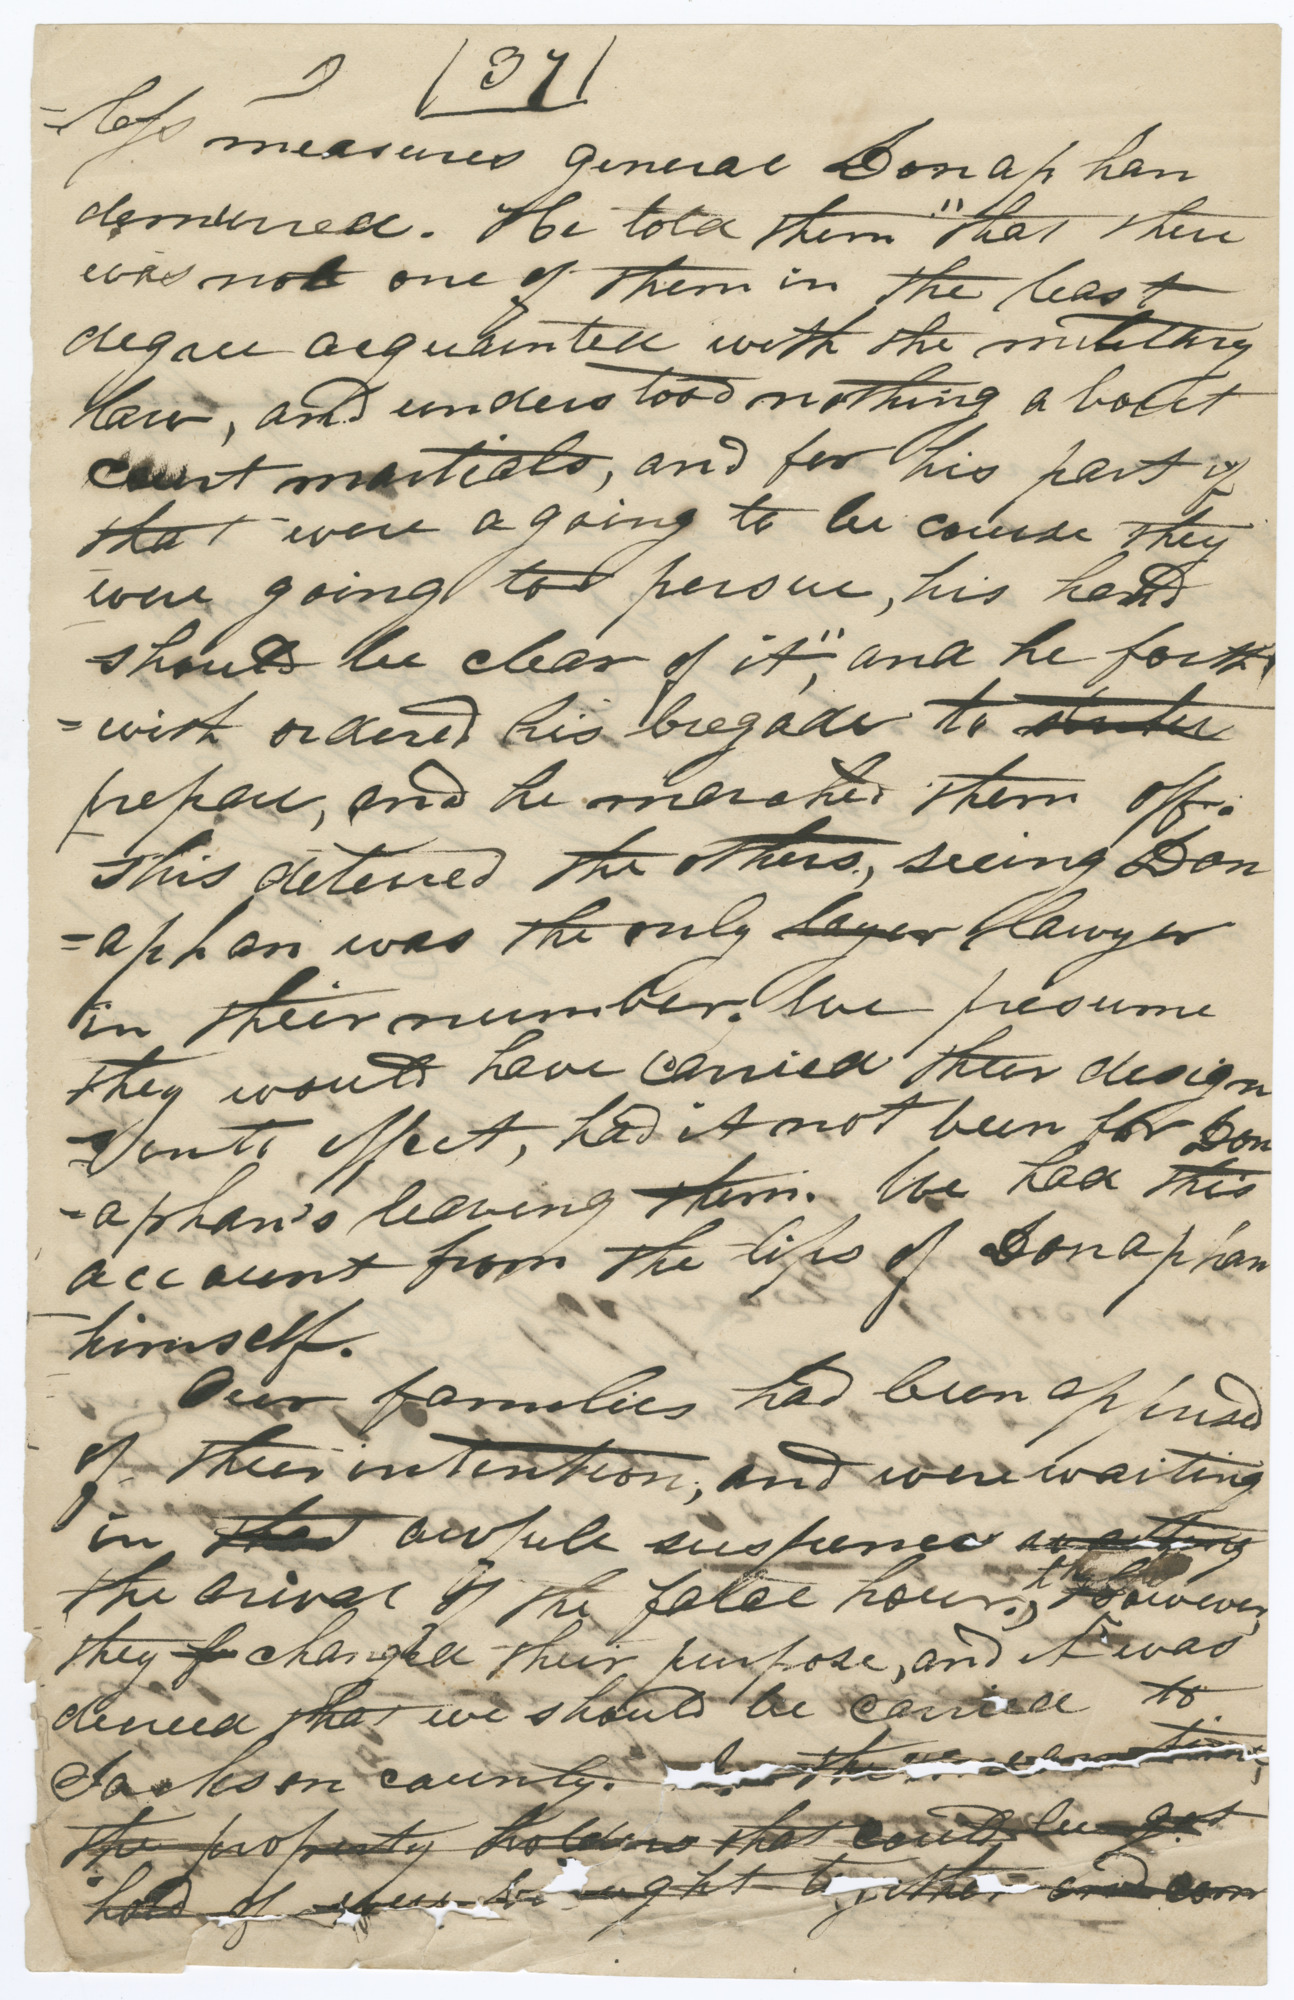 (37)
=less measures general Donaphan
demurred. He told them "that there
was not one of them in the least
degree acquainted with the military
law, and understood nothing about
court martials, and for his part if
that were a going to be course they
were going to persue, his hand
should be clear of it", and he forth
=with ordered his bregade to
prepare, and he marched them off.
This deterred the others, seeing Don
=aphan was the only layer lawyer
in their number. We presume
they would have carried their design
unto effect, had it not been for Don
=aphan's leaving them. We had this
account from the lips of Donaphan
himself.
Our families had been apprised
of their intention, and were waiting
in that awfull suspence waiting
the arival of the fatal hour. However,
they changed their purpose, and it was
decreed that we should be carried to
Jackson county. In the mean time,
the property holders that could be got
hold of were brought together and com